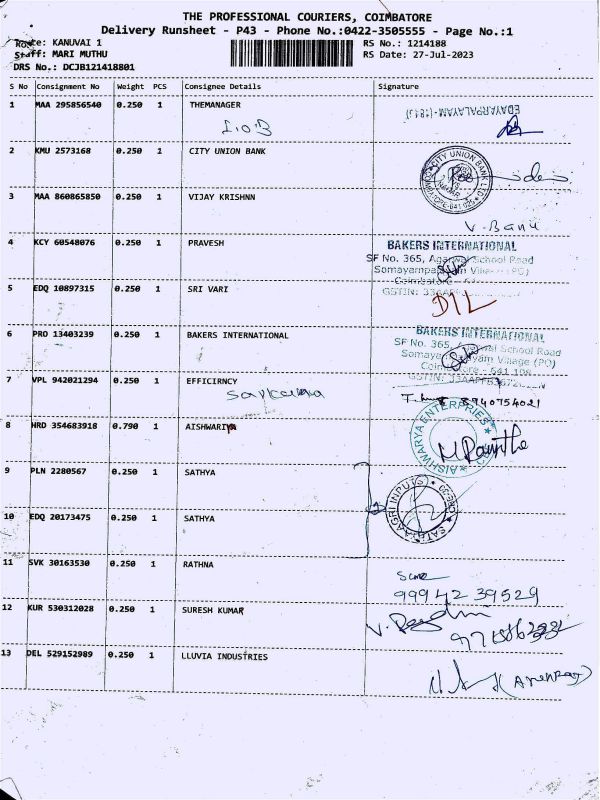 THE PROFESSIONAL COURIERS, COIMBATORE
Delivery Runsheet - P43 - Phone No.:0422-3505555 - Page No.:1
Route: KANUVAI 1 RS No.: 1214188
Staff: MARI MUTHU RS Date: 27-Jul-2023
DRS No.: DCJB121418801
S No Consignment No Weight PCS Consignee Details Signature
1 MAA 295856540 0.250 1 THEMANAGER
I.O.B
EDAYARPALAYAM-(1813)
2 KMU 2573168 0.250 1 CITY UNION BANK
CITY UNION BANK LTD
3 MAA 860865850 0.250 1 VIJAY KRISHNN
V. Banu
4 KCY 60548076 0.250 1 PRAVESH
BAKERS INTERNATIONAL
SF No. 365, Agarwal School Road
Somayampalayam Village (PO)
Coimbatore
GSTIN:
5 EDQ 10897315 0.250 1 SRI VARI
D1L
6 PRO 13403239 0.250 1 BAKERS INTERNATIONAL
BAKERS INTERNATIONAL
SF No. 365, Agarwal School Road
Somayampalayam Village (PO)
Coimbatore - 641 108
GSTIN:
7 VPL 942021294 0.250 1 EFFICIRNCY
8940754021
8 HRD 354683918 0.790 1 AISHWARIYA
AISHWARYA ENTERPRIES
9 PLN 2280567 0.250 1 SATHYA
SATHYA AGRI INPUTS
10 EDQ 20173475 0.250 1 SATHYA
11 SVK 30163530 0.250 1 RATHNA
99942 39529
12 KUR 530312028 0.250 1 SURESH KUMAR
13 DEL 529152989 0.250 1 LLUVIA INDUSTRIES